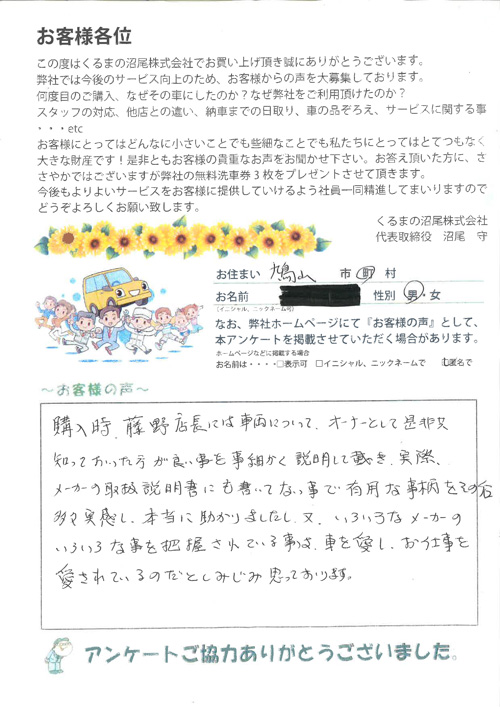 お客様各位
この度はくるまの沼尾株式会社でお買い上げ頂き誠にありがとうございます。
弊社では今後のサービス向上のため、お客様からの声を大募集しております。
何度目のご購入、なぜその車にしたのか？なぜ弊社をご利用頂けたのか？
スタッフの対応、他店との違い、納車までの日取り、車の品ぞろえ、サービスに関する事
・・・etc
お客様にとってはどんなに小さいことでも些細なことでも私たちにとってはとてつもなく
大きな財産です！是非ともお客様の貴重なお声をお聞かせ下さい。お答え頂いた方に、さ
さやかではございますが弊社の無料洗車券３枚をプレゼントさせて頂きます。
今後もよりよいサービスをお客様に提供していけるよう社員一同精進してまいりますので
どうぞよろしくお願い致します。
くるまの沼尾株式会社
代表取締役　沼尾　守
お住まい　鳩山　市　町　村
お名前　性別　男・女
（イニシャル、ニックネーム可）
なお、弊社ホームページにて『お客様の声』として、
本アンケートを掲載させていただく場合があります。
ホームページなどに掲載する場合
お名前は・・・・□表示可　□イニシャル、ニックネームで　匿名で
～お客様の声～
購入時、藤野店長には車両について、オーナーとして是非
知っておいた方が良い事を事細かく説明して戴き、実際、
メーカーの取扱説明書にも書いてない事で有用な事柄をその後
多々実感し、本当に助かりましたし、又、いろいろなメーカーの
いろいろな事を把握されている事は、車を愛し、お仕事を
愛されているのだとしみじみ思っております。
アンケートご協力ありがとうございました。